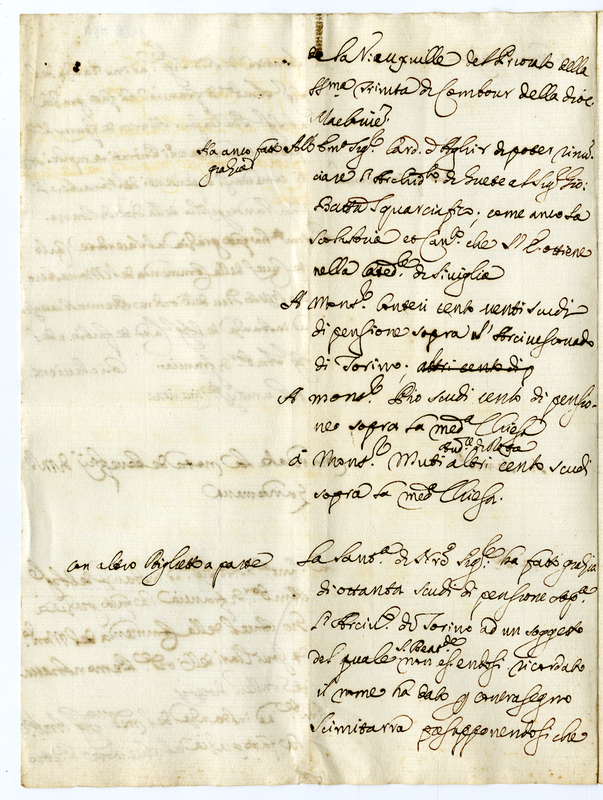 de la Vieuxville del Priorato della
ssma Trinità di Combour della dioc.
Macloviens.
Ha anco fatto grazia
All Emo Sigr Card. d'Aghir di poter rinun-
ciare l'Archidto di Huete al Sigr Gio:
Batta Squarciafico; come anco la
scolastria et Canto che S. E. ottiene
nella Catedle di Siviglia
A Monsr Conteri cento venti scudi
di pensione sopra l'Arcivescovado
di Torino; altri cento di
A monsr Pho scudi cento di pensio-
ne sopra la meda Chiesa
Audre di Rota
à Monsr Muti altri cento scudi
sopra la meda Chiesa.
con altro Biglietto a parte
La Santà di Nro Sigre ha fatto grazia
di ottanta scudi di pensione sopa
l'Arcivo di Torino ad un soggetto
S. Beatne
del quale non essendosi ricordato
il nome ha dato p contrasegno
Scimitarra presupponendosi che